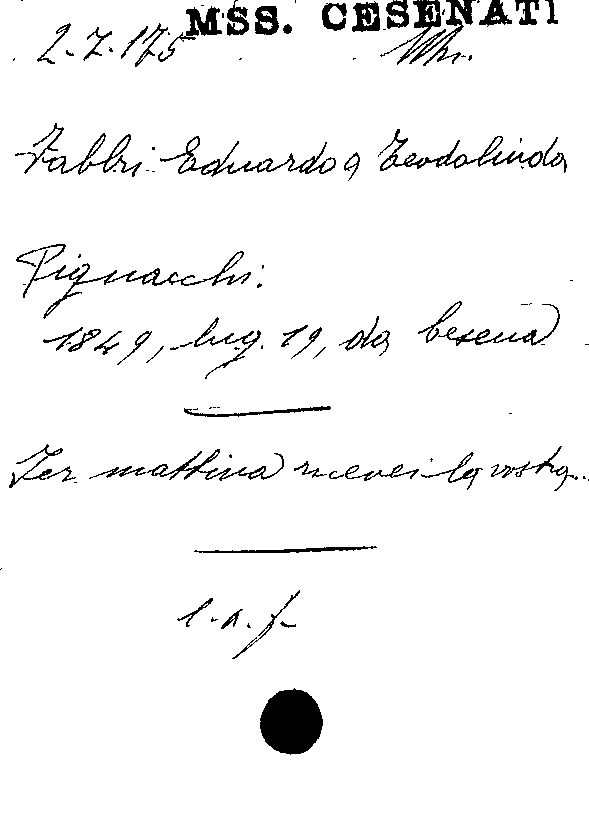 MSS. CESENATI
2.7.175
Fabbri Eduardo a Teodolinda
Pignocchi.
1849, lug. 19, da Cesena
Ier mattina ricevei la vostra..
l.a.f.